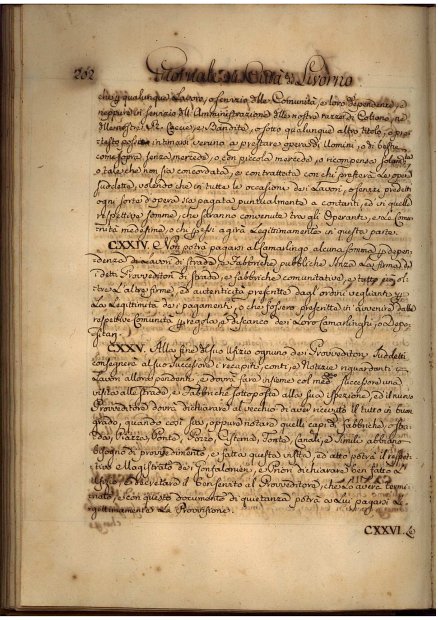 262
che per qualunque Lavoro, o servizio delle Comunità, e loro dependenze, e
neppure in servizio dell'Amministrazione delle nostre razze di Coltano, ne
delle nostre Caccie, e Bandite, o sotto qualunque altro titolo, o pre-
testo possa intimarsi veruno a prestare opera di Uomini, o di bestie
come sopra senza mercede, o con piccola mercede, o ricompensa solamente
o tale che non sia concordata, e contrattata con chi presterà le opere
suddette, volendo che in tutte le occasioni dei Lavori, o servizi predetti
ogni sorte d'opera sia pagata puntualmente a contanti, ed in quelle
respettive somme, che saranno convenute tra gli Operanti, e le Comu-
nità medesime, o chi per esse agirà Legittimamente in questa parte.
CXXIV. E Non potrà pagarsi dal Camarlingo alcuna somma per depen-
denza di Lavori di strade, e Fabbriche pubbliche senza la firma dei
detti Provveditori di strade, e fabbriche comunitative, e tutto ciò ol-
tre le altre firme, ed autenticità prescritte dagli ordini veglianti per
la Legittimità dei pagamenti, o che fossero prescritte in avvenire dalle
respettive Comunità per regola, e discarico dei Loro Camarlinghi, o Depo-
sitari.
CXXV. Alla fine del suo Ufizio ognuno dei Provveditori suddetti
consegnerà al suo Successore i recapiti, conti, e Notizie riguardanti i
Lavori allora pendenti, e dovrà fare insieme col med.º successore una
visita alle strade, e Fabbriche sottoposte alla sua Ispezione, ed il nuovo
Provveditore dovrà dichiarare al vecchio di aver ricevuto il tutto in buon
grado, quando così sia, oppure notare quelli capi di Fabbriche, o stra-
de, Piazze, Ponti, Pozzi, Cisterne, Fonti, Canali, e simili abbiano
bisogno di provvedimento, e fatta questa visita, ed atto potrà il respet-
tivo Magistrato dei Gonfalonieri, e Priori dichiarare ben fatto l'
Ufizio, e decretare il Ben servito al Provveditore, che lo avrà termi-
nato, e con questo documento di quietanza potrà a lui pagarsi le-
gittimamente la Provvisione.
CXXVI. Le